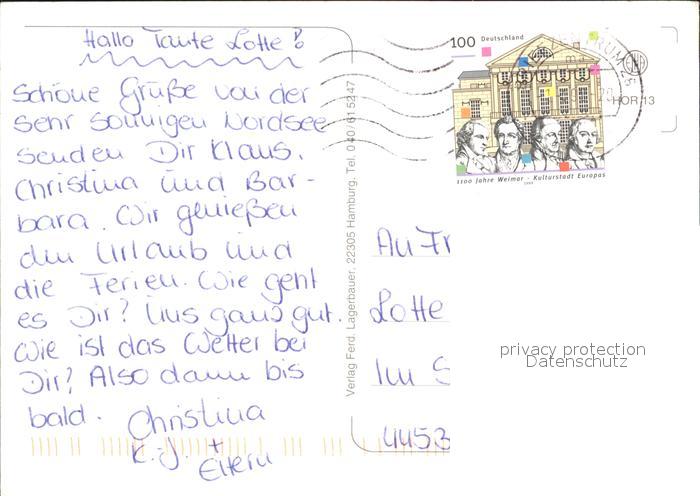 Hallo Tante Lotte!
Schöne Grüße von der
sehr sonnigen Nordsee
senden Dir Klaus,
Christina und Bar-
bara. Wir genießen
den Urlaub und
die Ferien. Wie geht
es Dir? Uns ganz gut.
Wie ist das Wetter bei
Dir? Also dann bis
bald.
Christina
K.-J. +
Eltern
Verlag Ferd. Lagerbauer, 22305 Hamburg, Tel. 040/61 5247
100 Deutschland
1100 Jahre Weimar - Kulturstadt Europas
1999
25
HOR 13
An Fr
Lotte
Im S
4453
privacy protection
Datenschutz